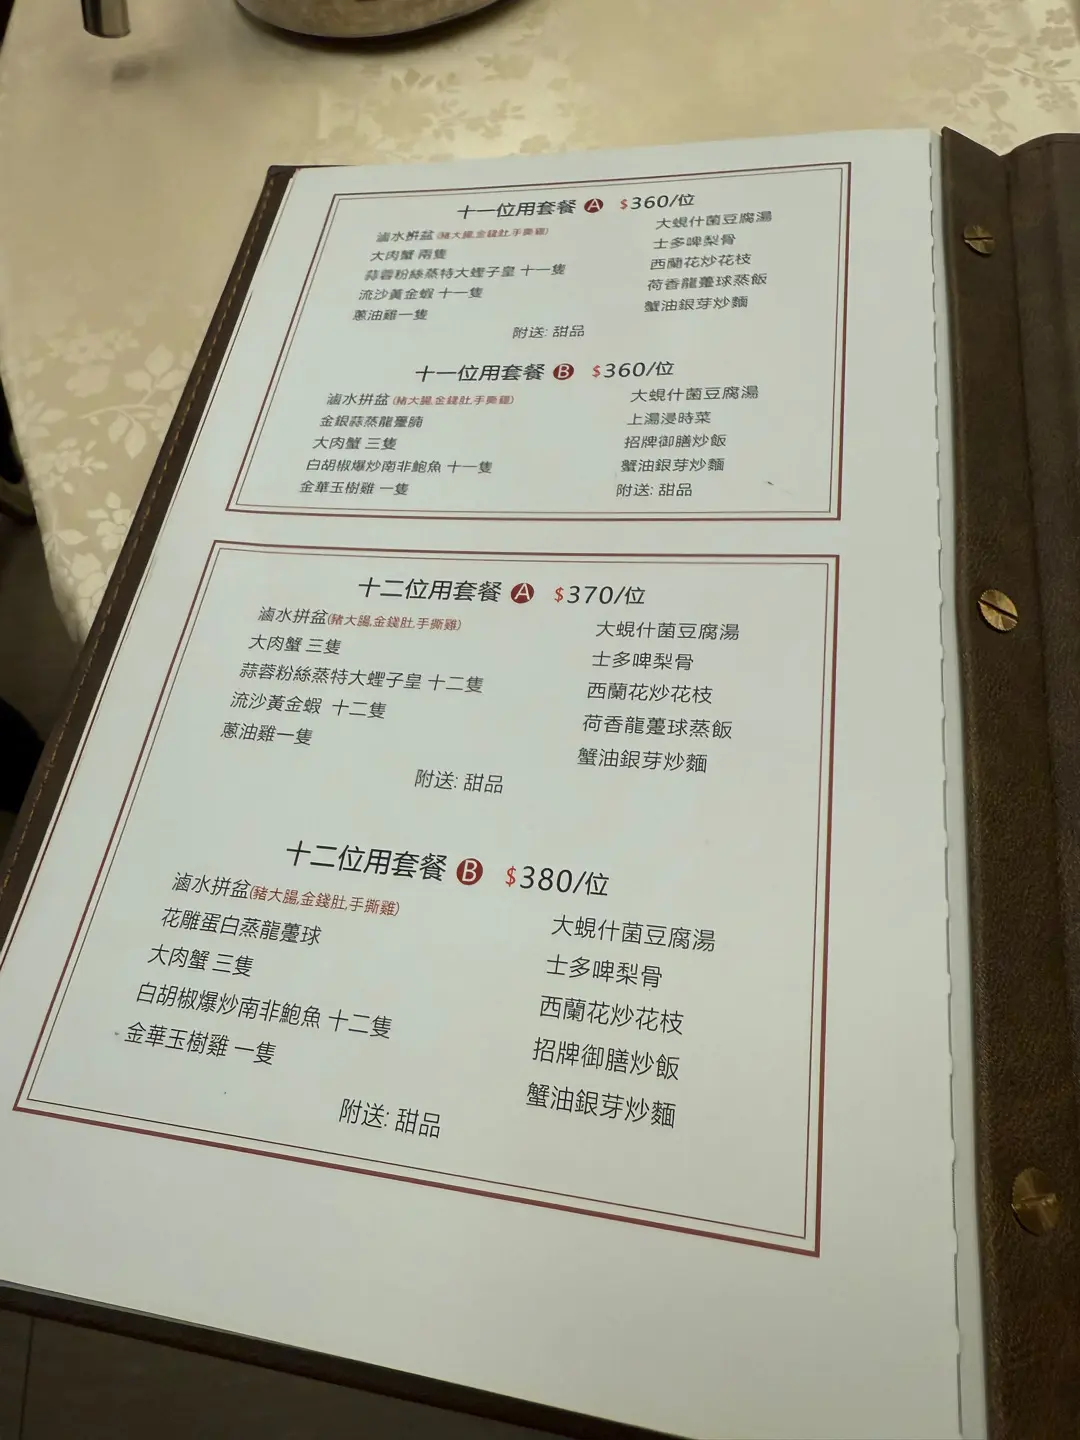 十一位用套餐 A $360/位
滷水拼盆(豬大腸,金錢肚,手撕雞)
大肉蟹 兩隻
蒜蓉粉絲蒸特大蟶子皇 十一隻
流沙黃金蝦 十一隻
蔥油雞一隻
大蜆什菌豆腐湯
士多啤梨骨
西蘭花炒花枝
荷香龍躉球蒸飯
蟹油銀芽炒麵
附送: 甜品
十一位用套餐 B $360/位
滷水拼盆(豬大腸,金錢肚,手撕雞)
金銀蒜蒸龍躉腩
大肉蟹 三隻
白胡椒爆炒南非鮑魚 十一隻
金華玉樹雞 一隻
大蜆什菌豆腐湯
上湯浸時菜
招牌御膳炒飯
蟹油銀芽炒麵
附送: 甜品
十二位用套餐 A $370/位
滷水拼盆(豬大腸,金錢肚,手撕雞)
大肉蟹 三隻
蒜蓉粉絲蒸特大蟶子皇 十二隻
流沙黃金蝦 十二隻
蔥油雞一隻
大蜆什菌豆腐湯
士多啤梨骨
西蘭花炒花枝
荷香龍躉球蒸飯
蟹油銀芽炒麵
附送: 甜品
十二位用套餐 B $380/位
滷水拼盆(豬大腸,金錢肚,手撕雞)
花雕蛋白蒸龍躉球
大肉蟹 三隻
白胡椒爆炒南非鮑魚 十二隻
金華玉樹雞 一隻
大蜆什菌豆腐湯
士多啤梨骨
西蘭花炒花枝
招牌御膳炒飯
蟹油銀芽炒麵
附送: 甜品